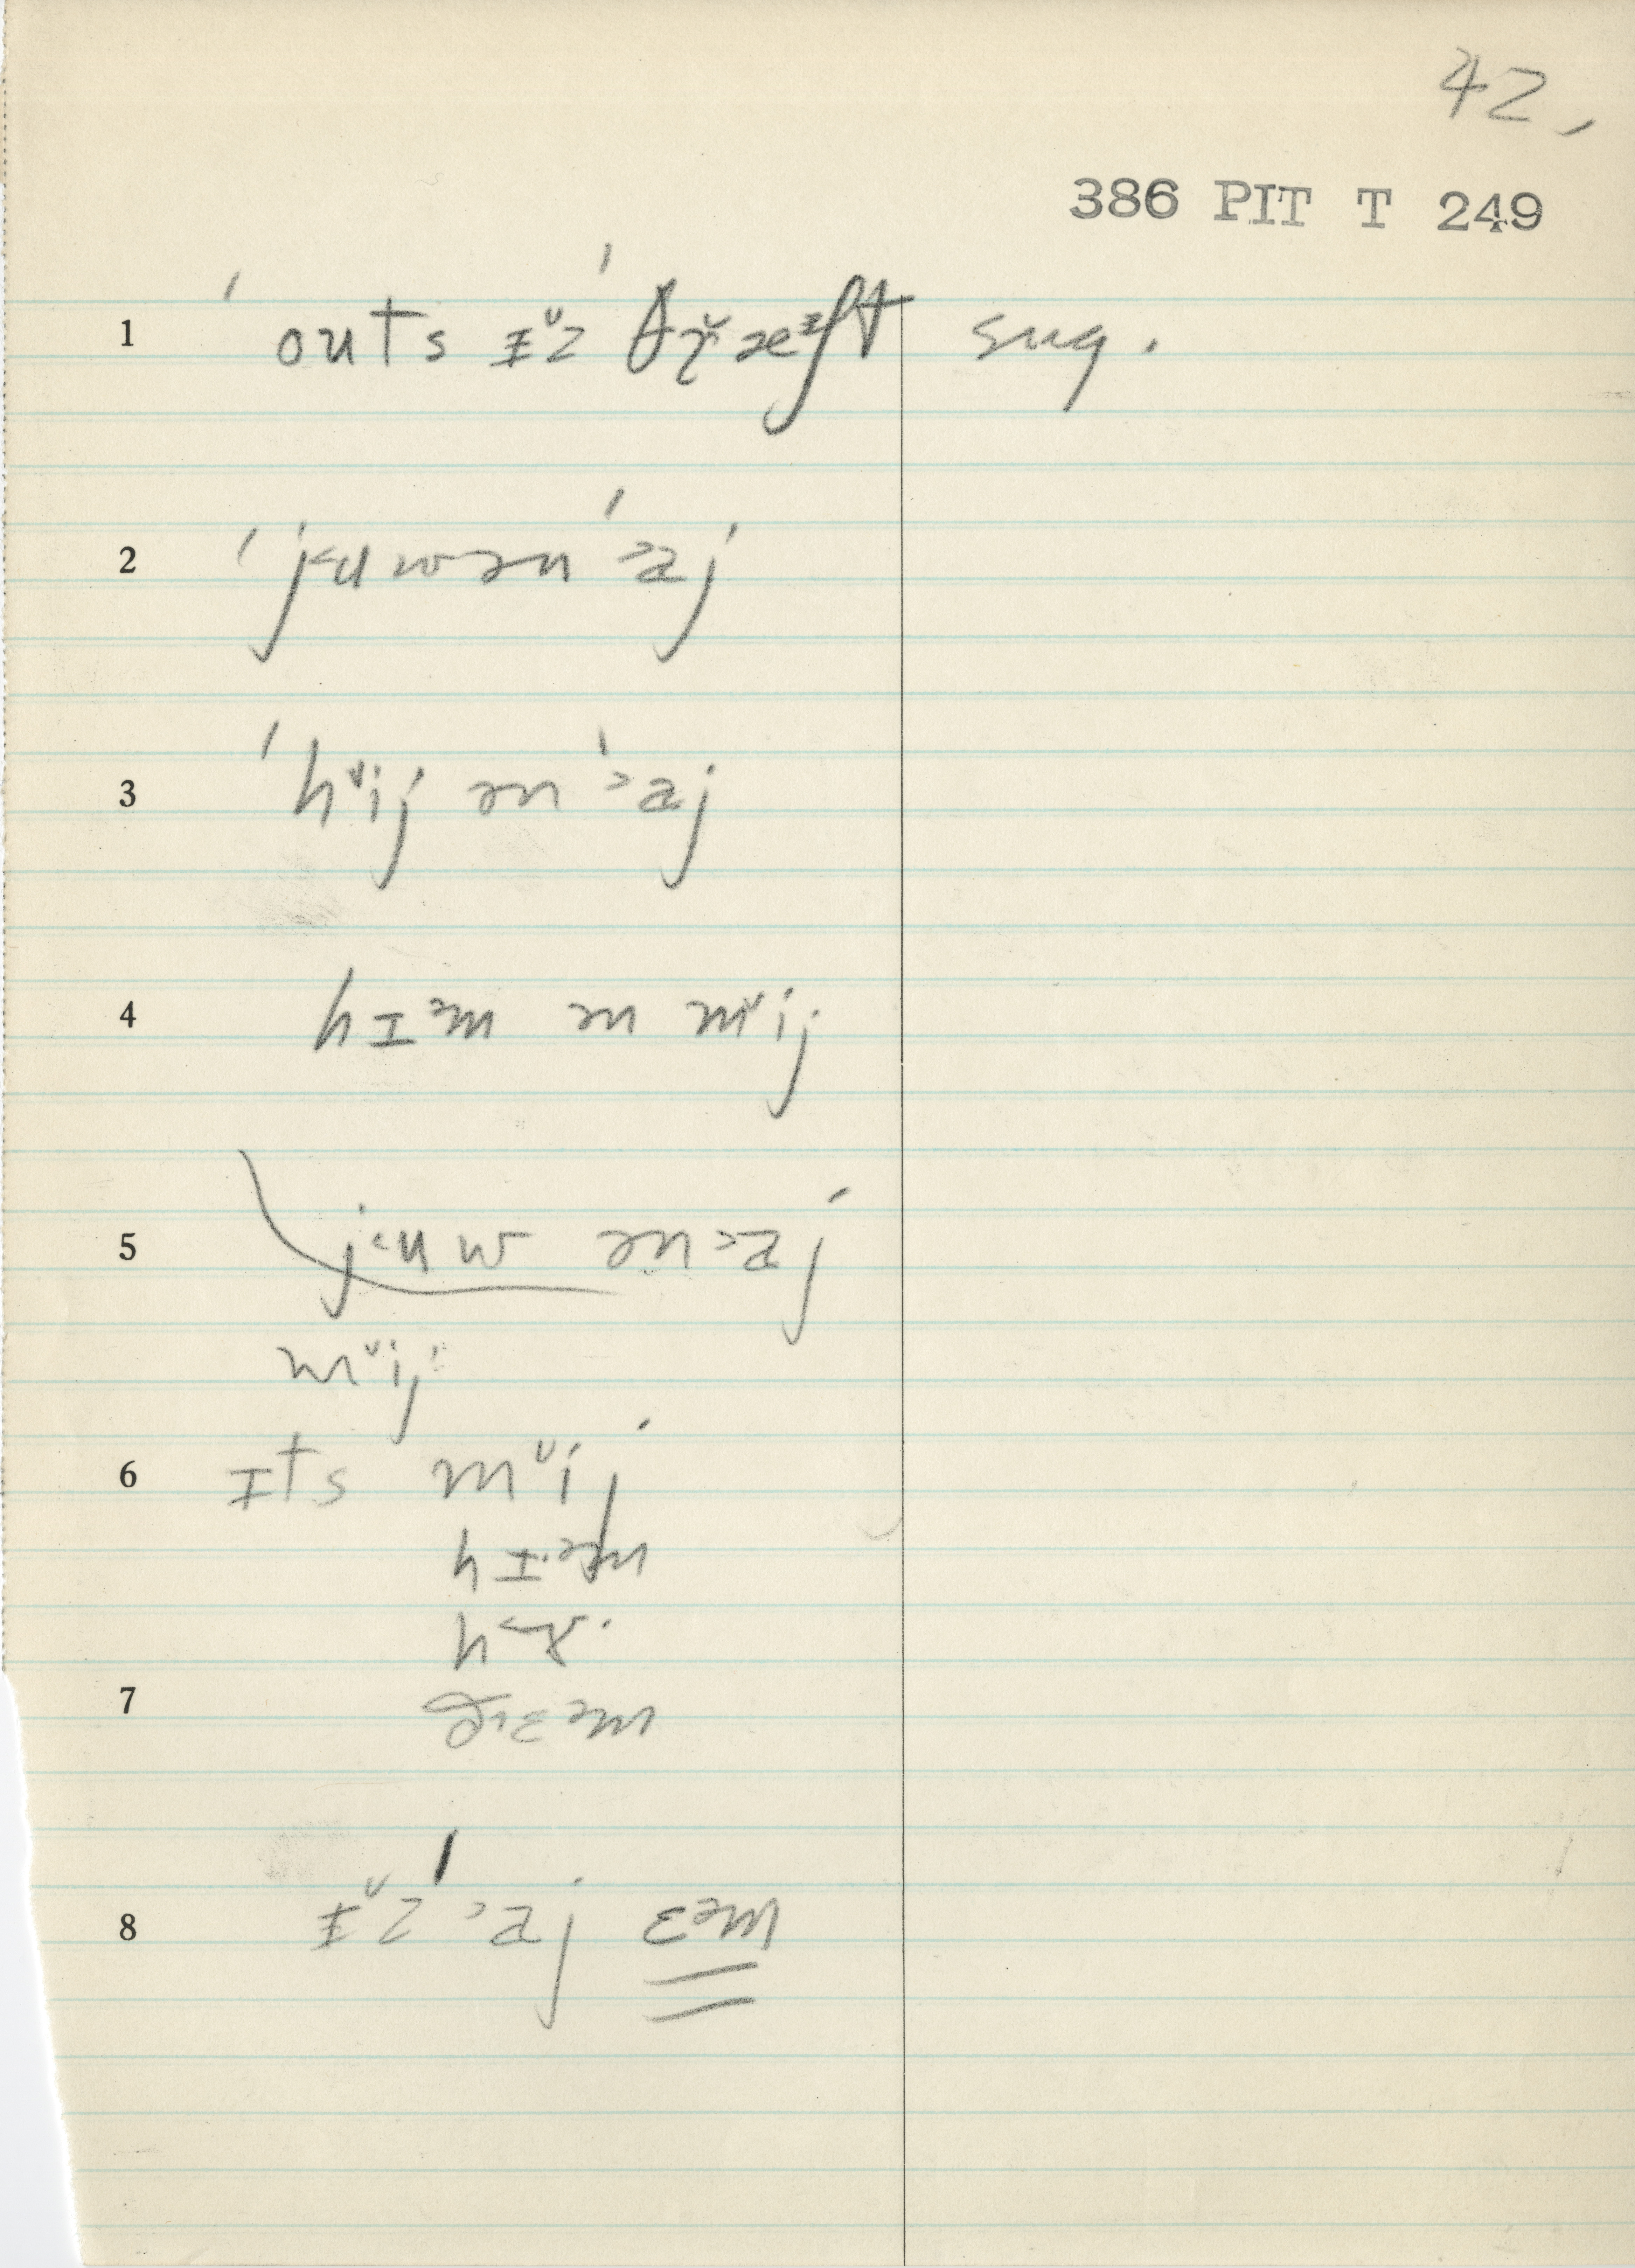 42,
386 PIT T 249
1 ˈouts ɪ̵ᵛz ˈθɹ̌æᶦft sug.
2 ˈjᵕuwən ˈ˃aj
3 ˈhᵛij ən ˈ˃aj
4 hɪᵊm ən mᵛij
5 j˂uw ən˃aj
mᵛij
6 ɪts mᵛij
hɪ·ᵊm
7 ðɛᵊm
8 ɪ̵ᵛz ˈ˃aj ɛᵊm